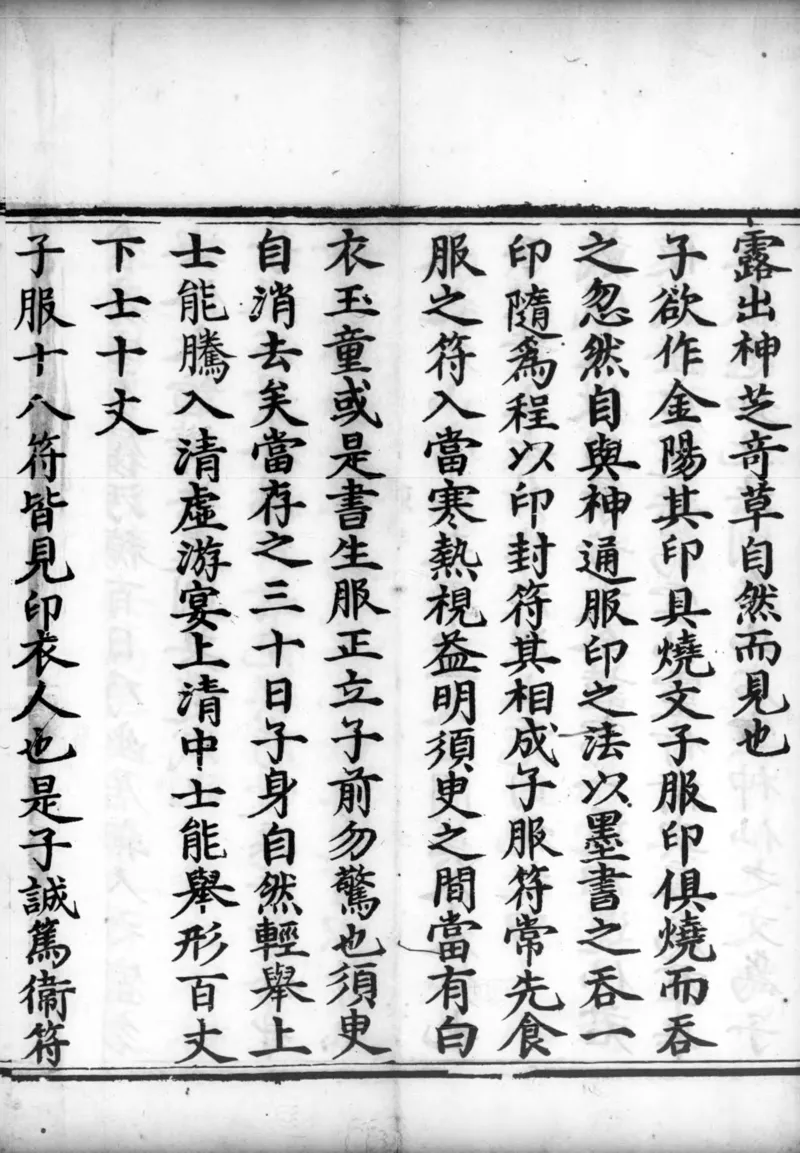 露出神芝奇草自然而見也
子欲作金陽其印具燒文子服印俱燒而吞
之忽然自與神通服印之法以墨書之吞一
印隨爲程以印封符其相成子服符常先食
服之符入當寒熱視益明須臾之間當有白
衣玉童或是書生服正立子前勿驚也須臾
自消去矣當存之三十日子身自然輕舉上
士能騰入清虛游宴上清中士能舉形百丈
下士十丈
子服十八符皆見印衣人也是子誠篤衞符